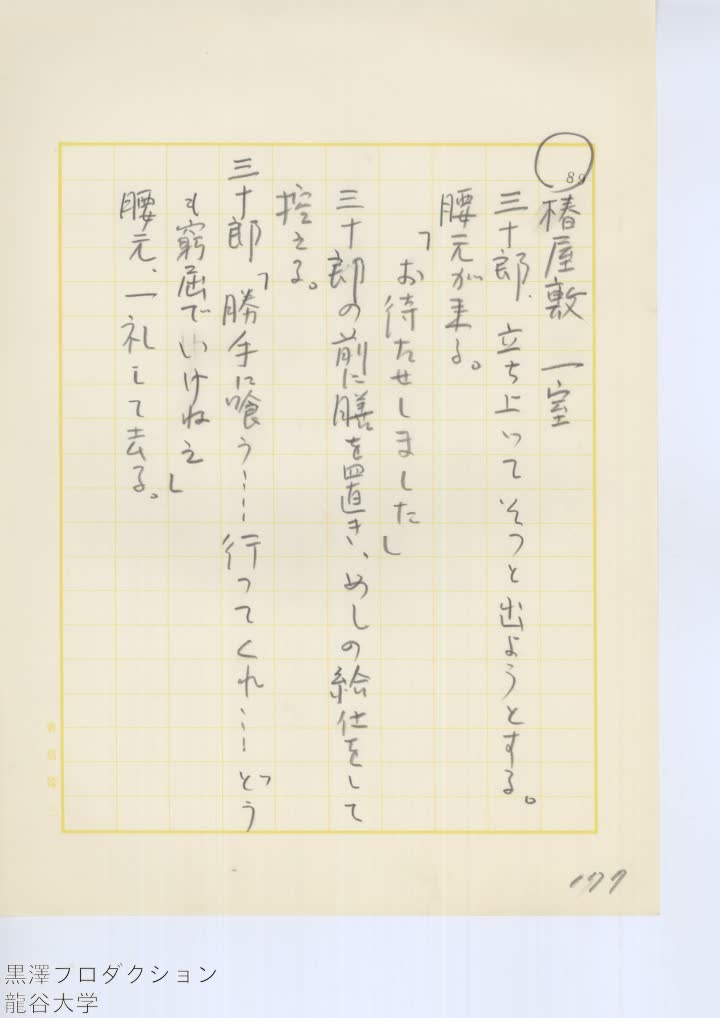 89
椿屋敷 一室
三十郎、立ち上ってそっと出ようとする。
腰元が来る。
「お待たせしました」
三十郎の前に膳を置き、めしの給仕をして
控える。
三十郎「勝手に喰う……行ってくれ……どう
も窮屈でいけねえ」
腰元、一礼して去る。
177
黒澤プロダクション
龍谷大学